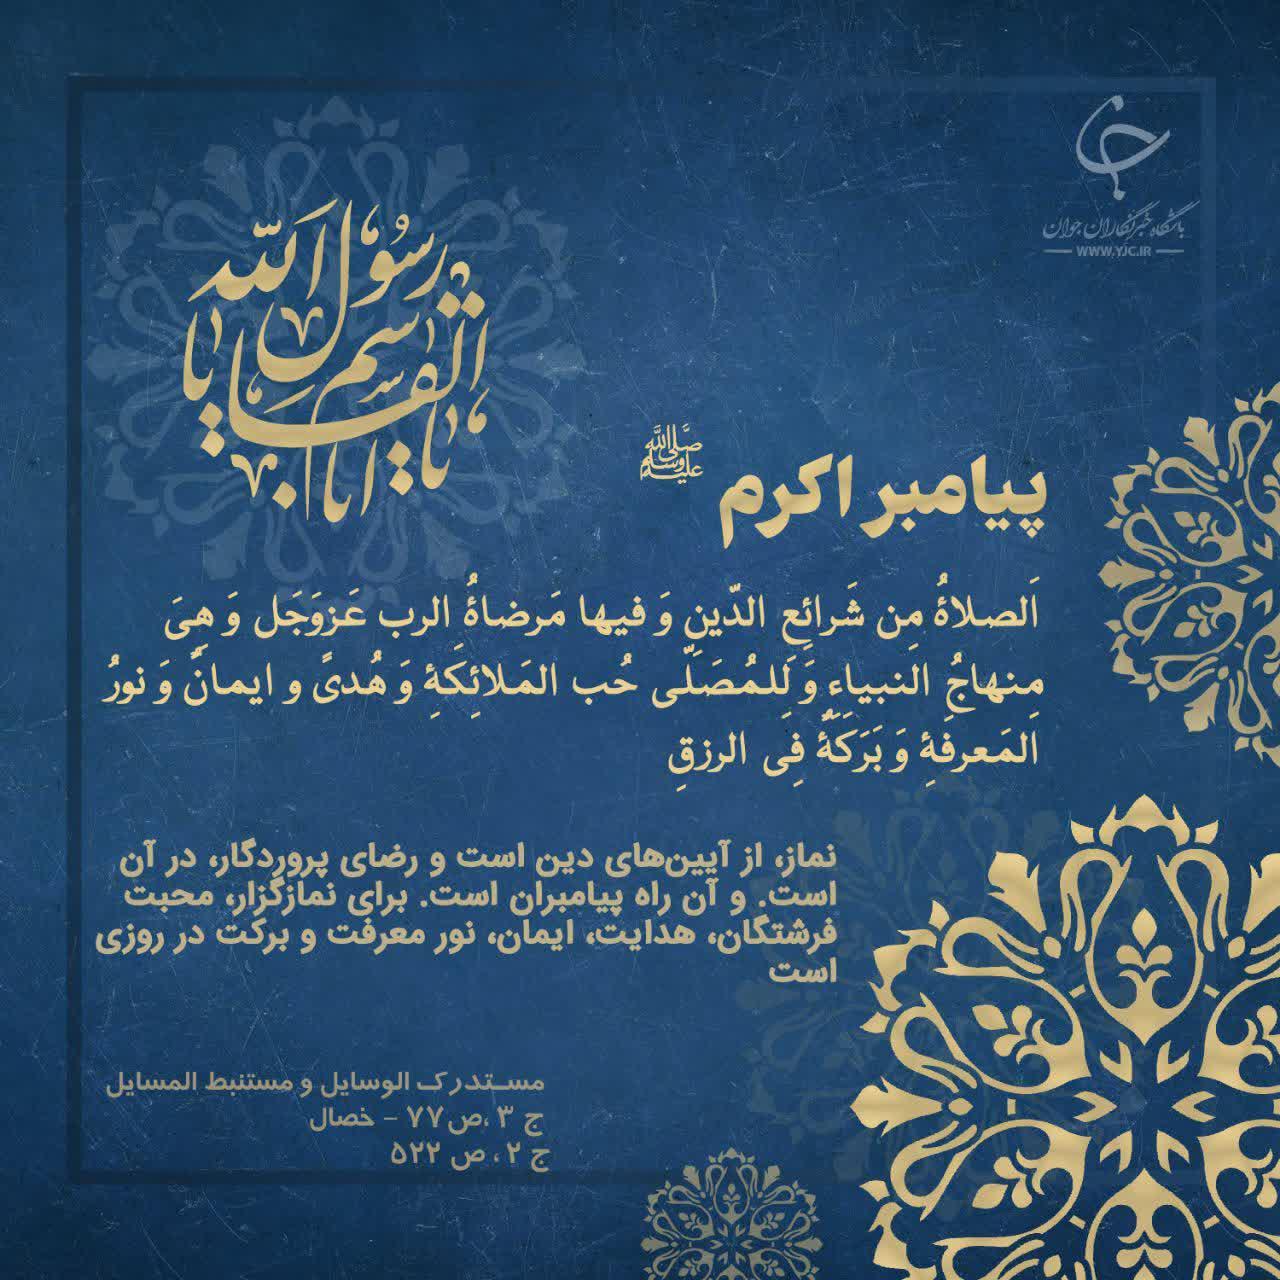 باشگاه خبرنگاران جوان
WWW.YJC.IR
یا ابا القاسم یا رسول الله
پیامبر اکرم ﷺ
اَلصلاةُ مِن شَرائِعِ الدّینِ وَ فیها مَرضاةُ الرب عَزوَجَل وَ هِیَ
مِنهاجُ النبیاءِ وَ لِلمُصَلّی حُب المَلائِکَةِ وَ هُدیً و ایمانٌ وَ نورُ
المَعرفَةِ وَ بَرَکَةٌ فِی الرزقِ
نماز، از آیین‌های دین است و رضای پروردگار، در آن
است. و آن راه پیامبران است. برای نمازگزار، محبت
فرشتگان، هدایت، ایمان، نور معرفت و برکت در روزی
است
مستدرک الوسایل و مستنبط المسایل
ج ۳ ،ص۷۷ - خصال
ج ۲ ، ص ۵۲۲